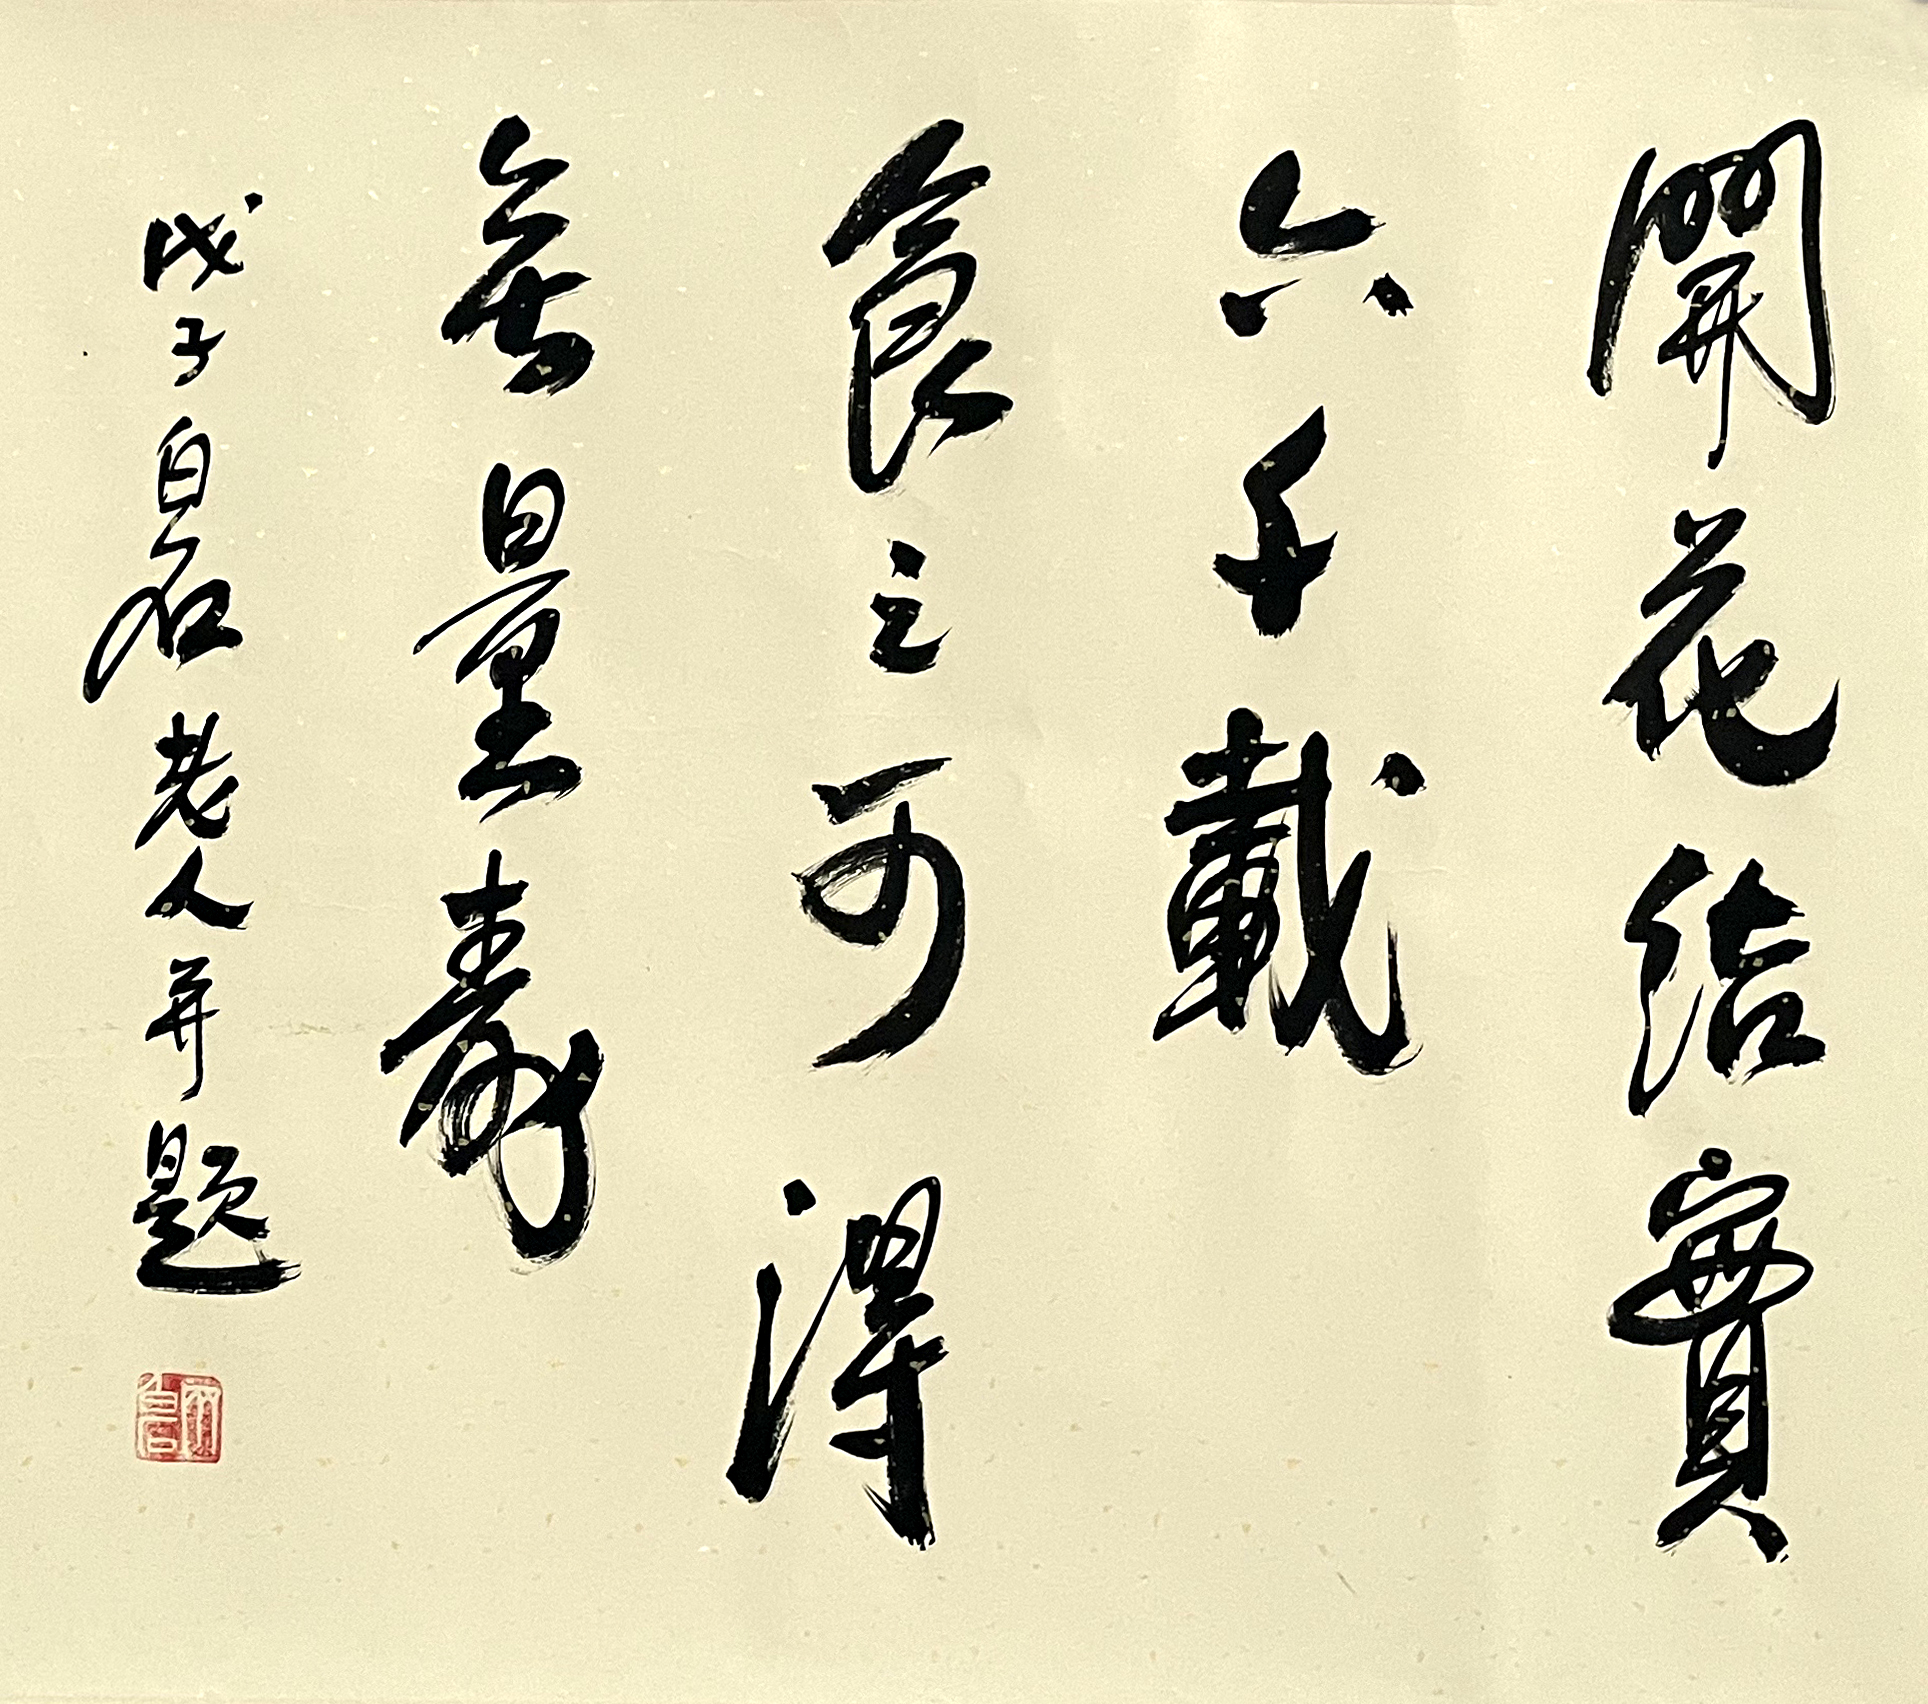 開花結實
六千載
食之可得
無量壽
戊子白石老人并題
白石